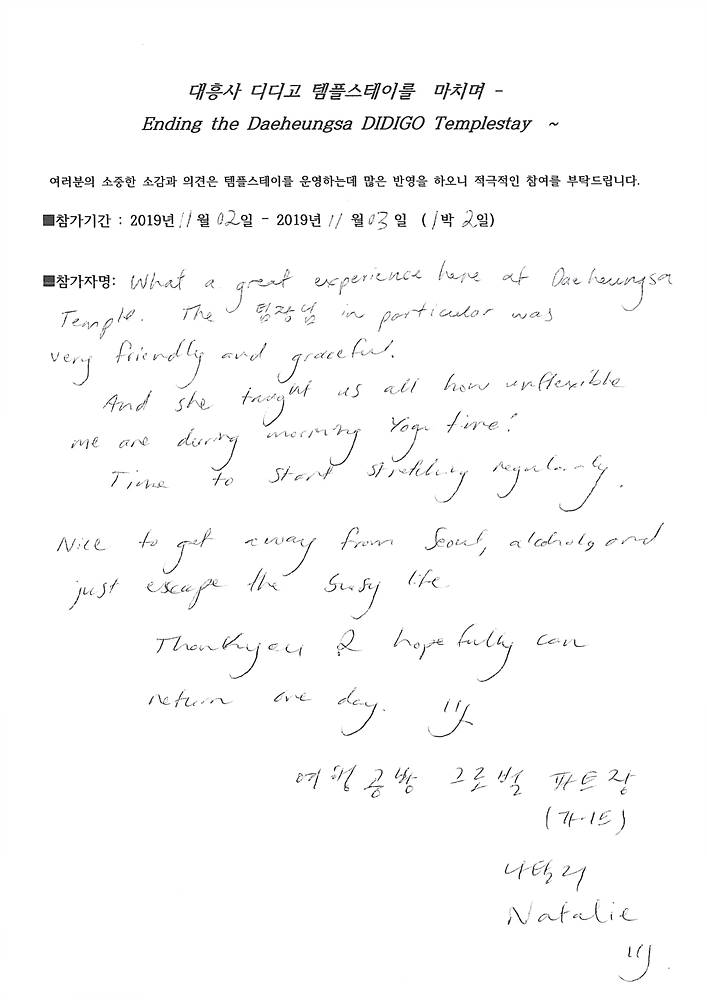 대흥사 디디고 템플스테이를 마치며 -
Ending the Daeheungsa DIDIGO Templestay ~
여러분의 소중한 소감과 의견은 템플스테이를 운영하는데 많은 반영을 하오니 적극적인 참여를 부탁드립니다.
■참가기간 : 2019년 11월 02일 - 2019년 11월 03일 (1박 2일)
■참가자명: What a great experience here at Daeheungsa
Temple. The 팀장님 in particular was
very friendly and graceful.
And she taught us all how unflexible
me are during morning Yoga time!
Time to start stretching regularly.
Nice to get away from Seoul, alcohol, and
just escape the busy life.
Thankyou & hopefully can
return one day.
여행공방 그로벌 파트장
(가이드)
나탈리
Natalie